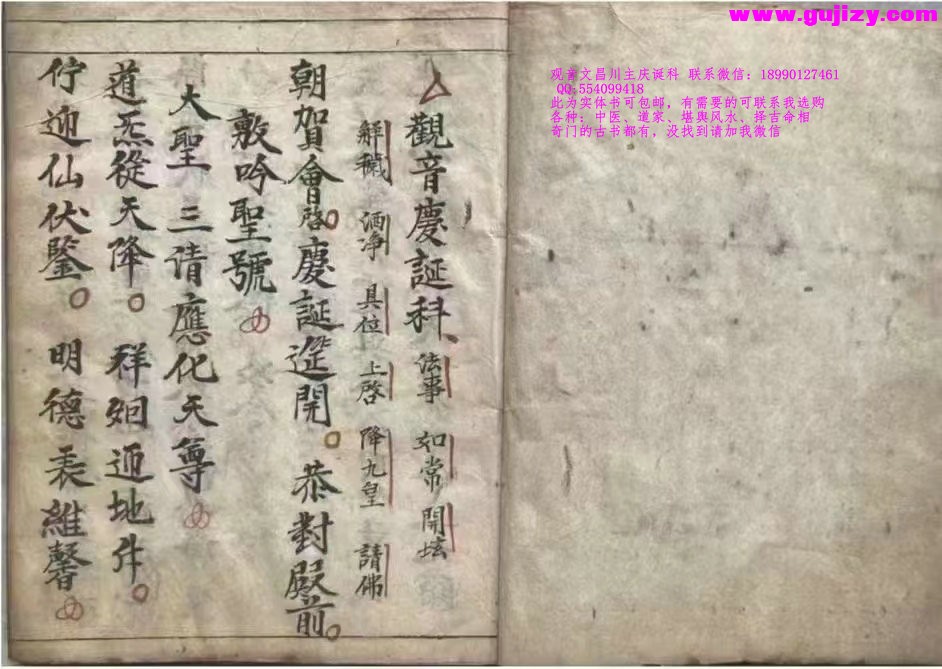 www.gujizy.com
观音文昌川主庆诞科 联系微信：18990127461
QQ:554099418
此为实体书可包邮，有需要的可联系我选购
各种：中医、道家、堪舆风水、择吉命相
奇门的古书都有，没找到请加我微信
觀音慶誕科 法事 如常 開坛
解穢 洒净 具位 上啓 降九皇 請佛
朝賀會啓。慶誕筵開。恭對殿前。
敷吟聖號
大聖 三请應化天尊
道炁從天降。祥迴地升。
佇迎仙伏鑒。明德表維馨